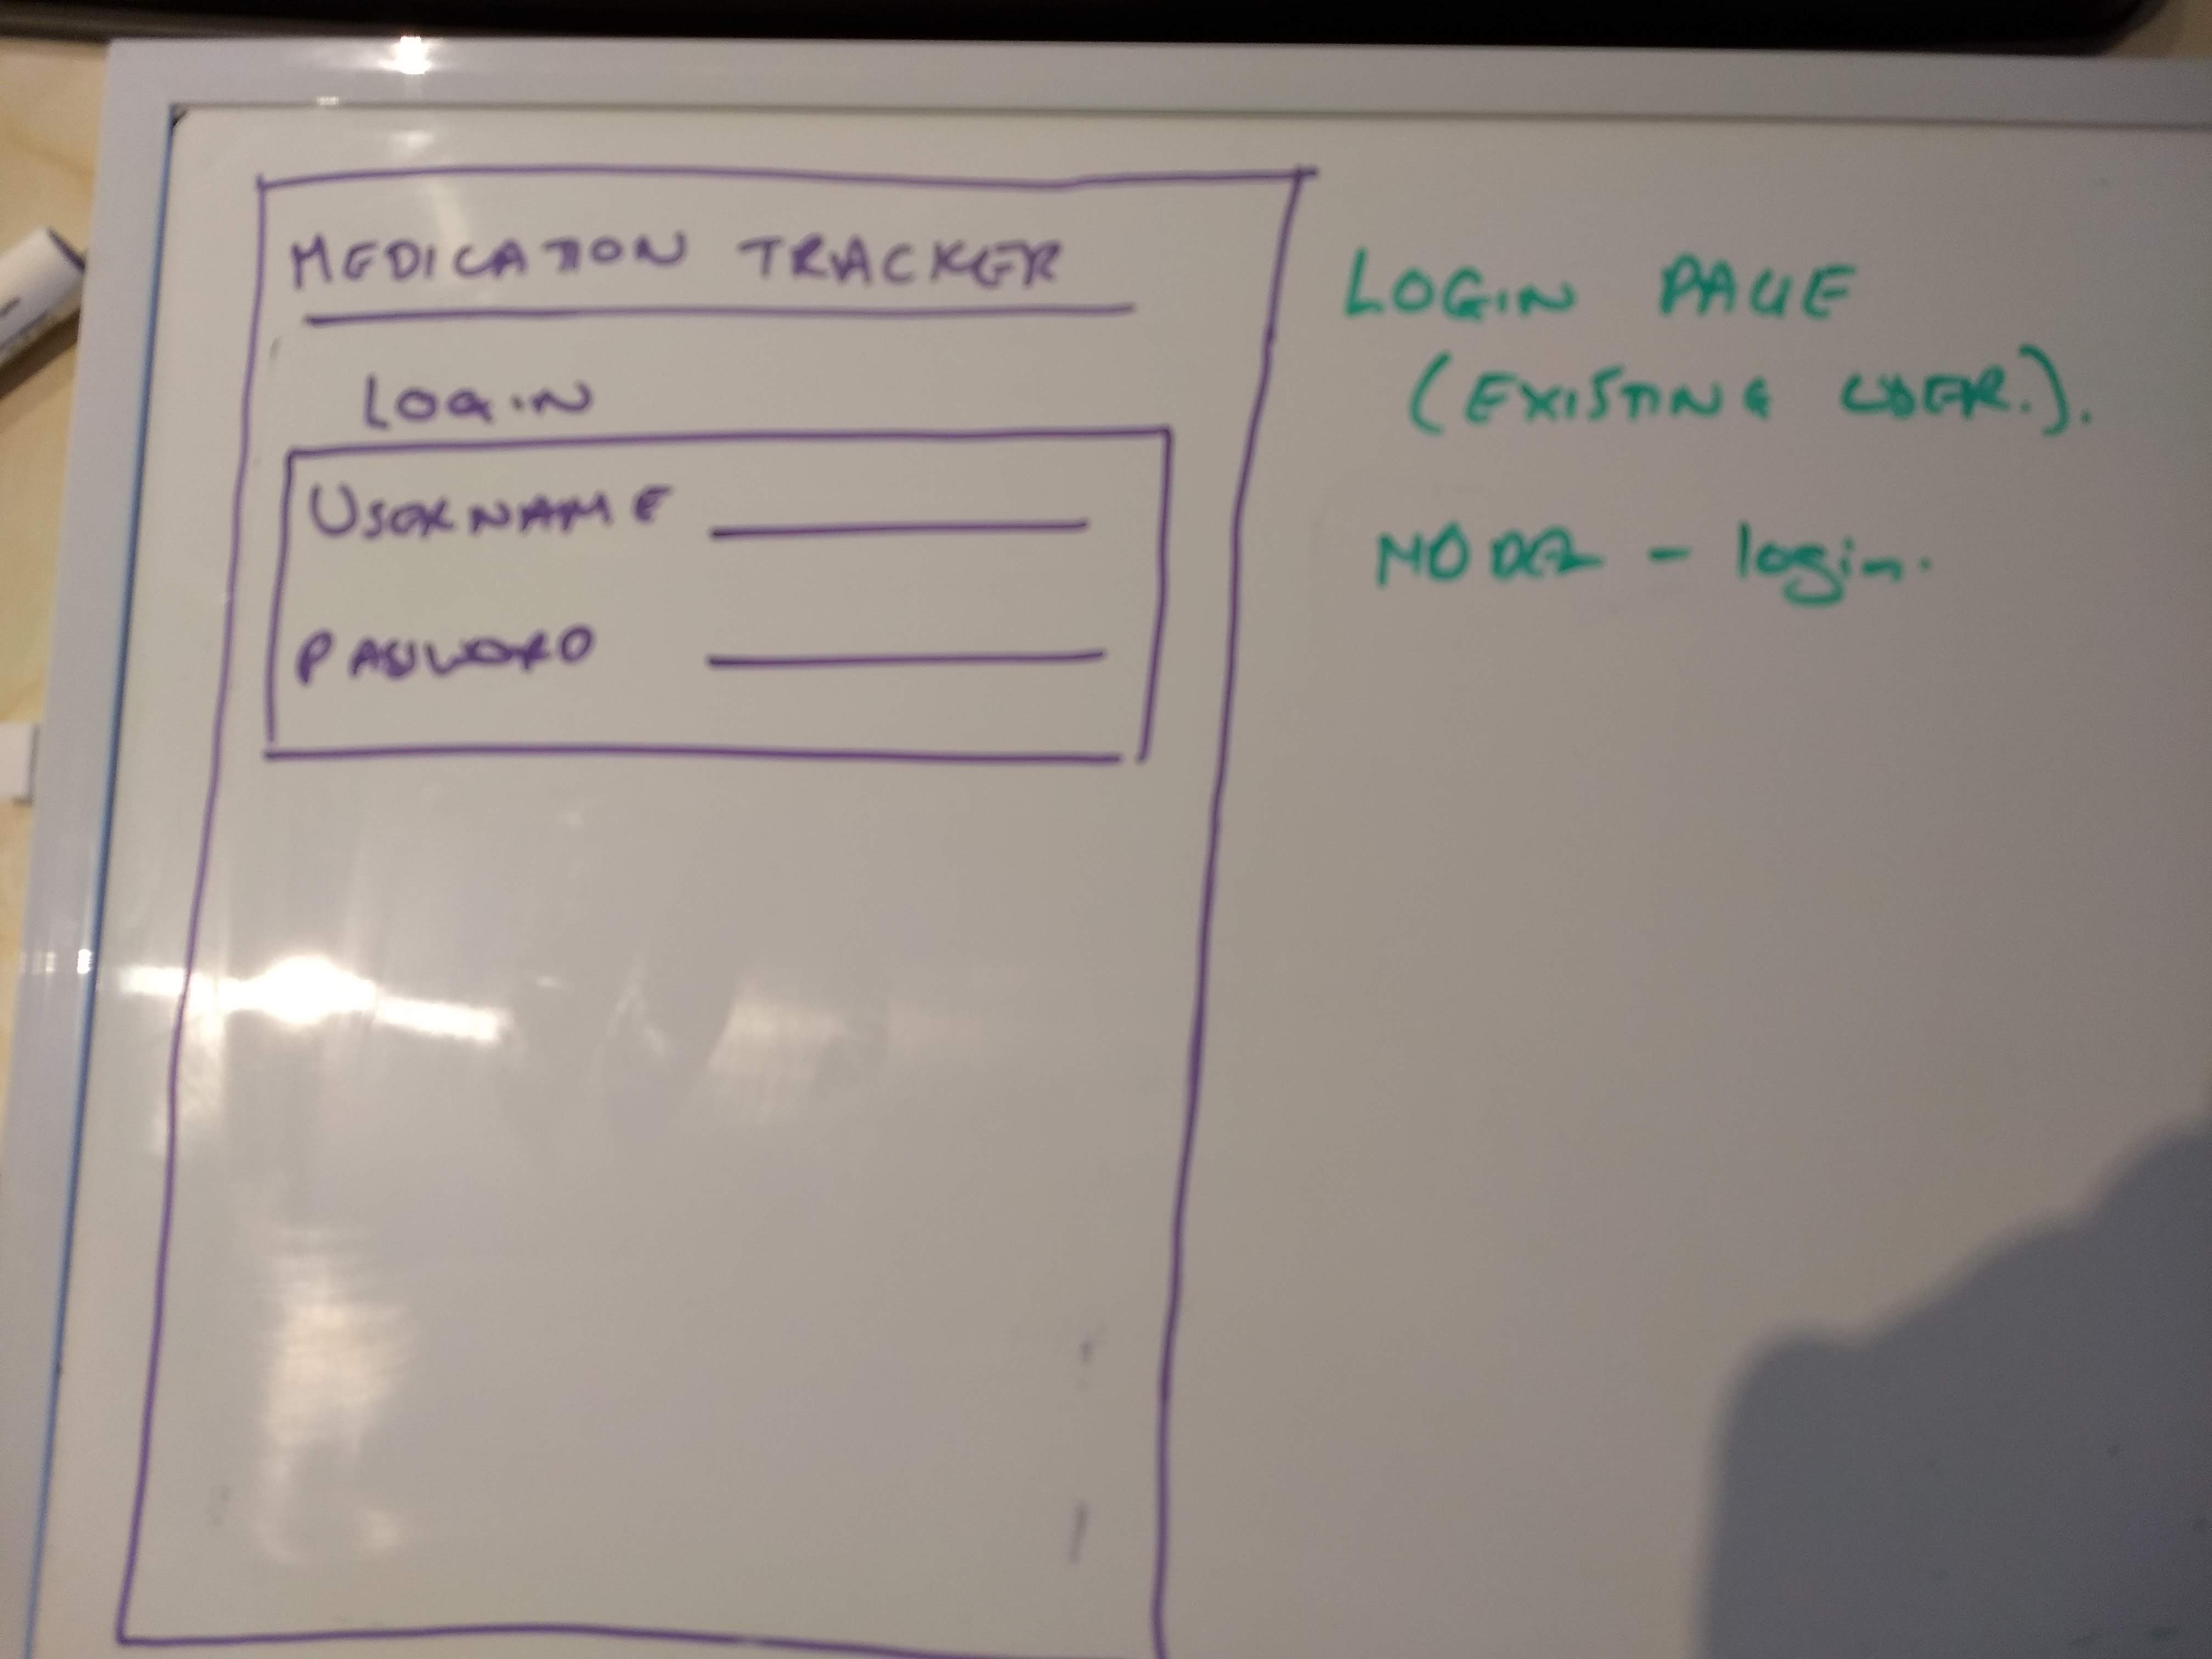 MEDICATION TRACKER
LOGIN
USERNAME
PASSWORD
LOGIN PAGE
(EXISTING USER.).
- login.